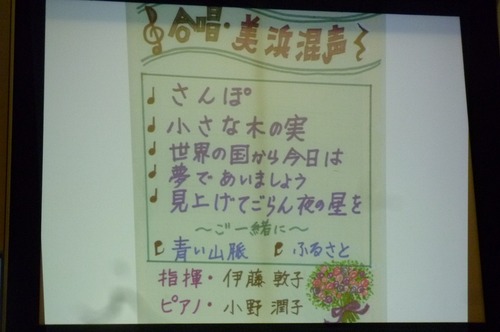 合唱・美浜混声
さんぽ
小さな木の実
世界の国から今日は
夢であいましょう
見上げてごらん夜の星を
〜ご一緒に〜
青い山脈 ふるさと
指揮・伊藤 敦子
ピアノ・小野 潤子